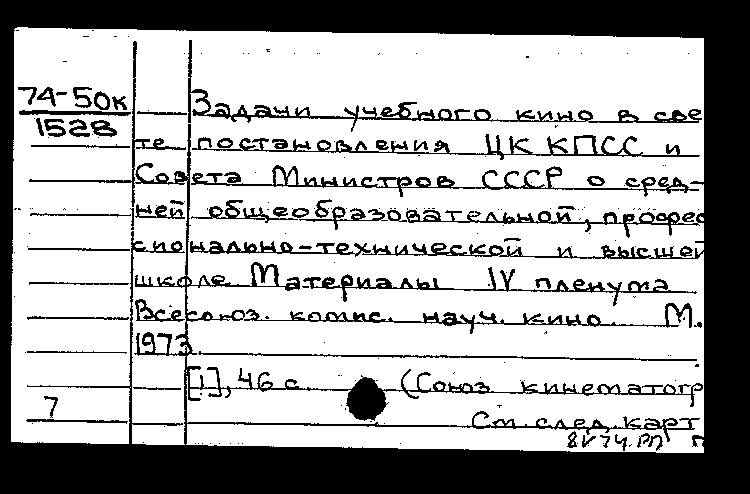 74-50к
1528
Задачи учебного кино в све
те постановления ЦК КПСС и
Совета Министров СССР о сред-
ней общеобразовательной, профес
сионально-технической и высшей
школе. Материалы IV пленума
Всесоюз. комис. науч. кино. М.
1973.
[1], 46 с. (Союз кинематогр
7
См. след. карт